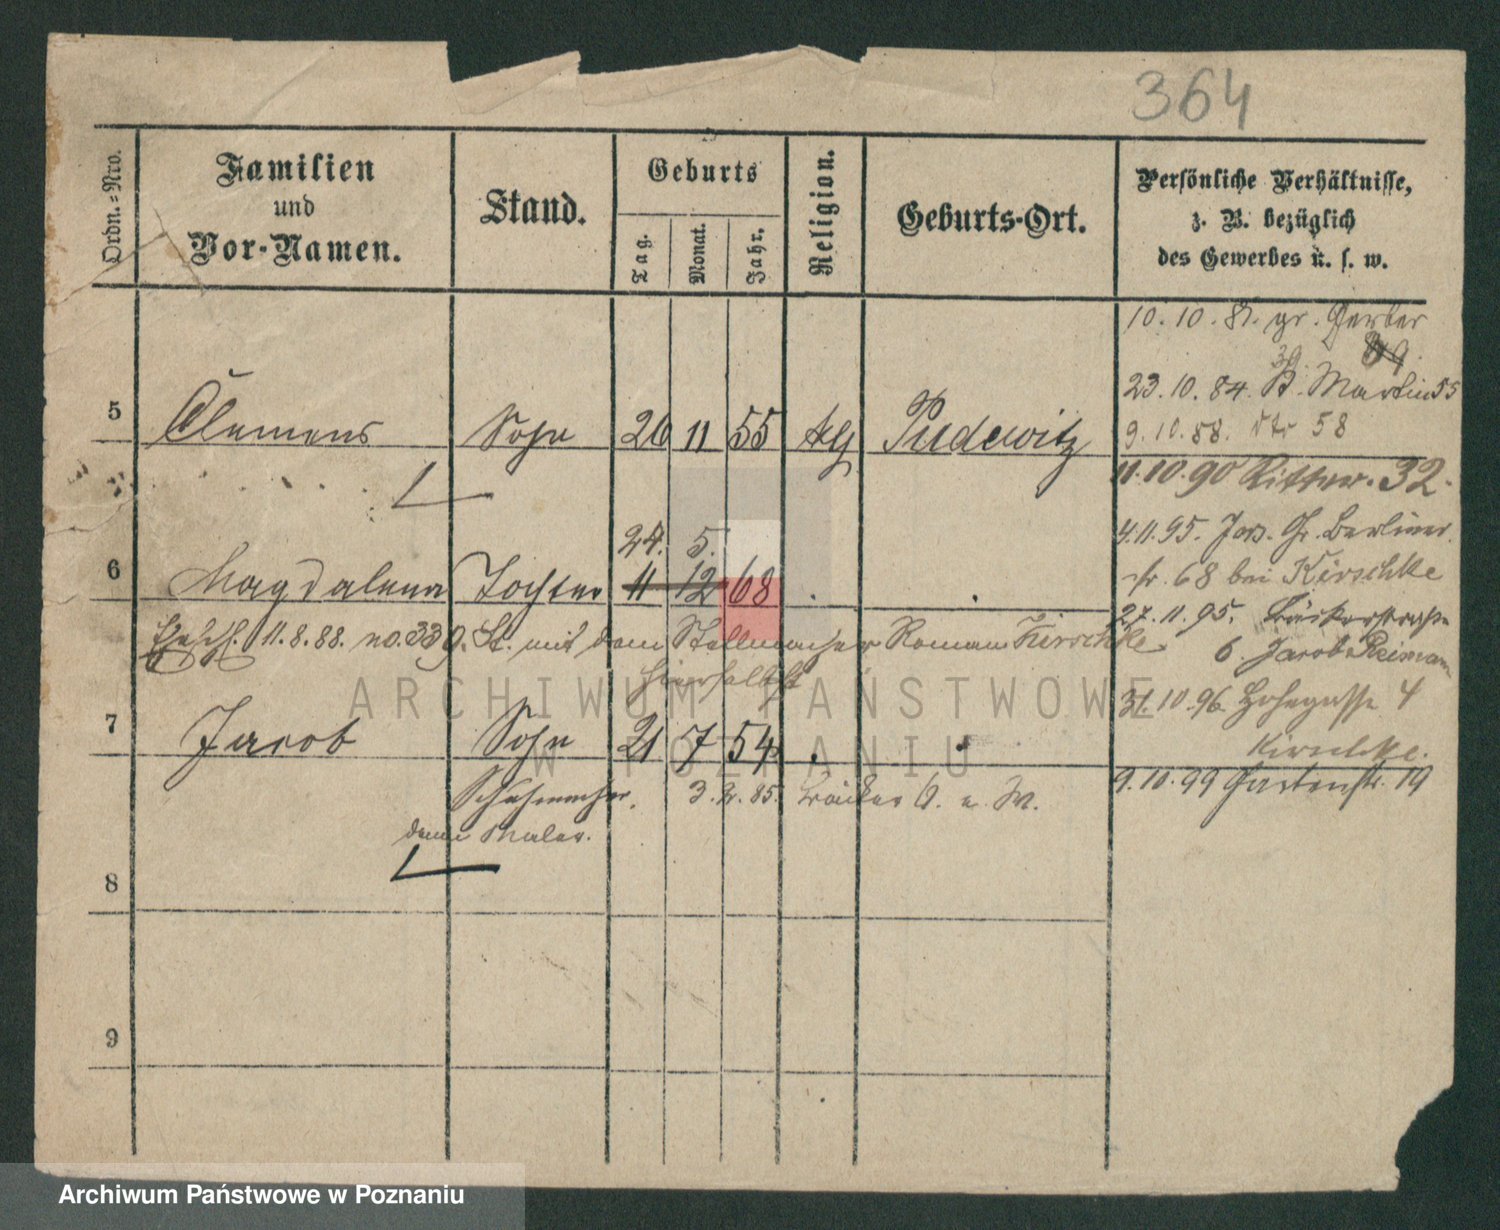 364
Ordn.-Nro.
Familien
und
Vor-Namen.
Stand.
Geburts
Tag.
Monat.
Jahr.
Religion.
Geburts-Ort.
Persönliche Verhältnisse,
z. B. bezüglich
des Gewerbes u. s. w.
10. 10. 81. gr. Gerber
39
23. 10. 84. St. Martin 55
5 Clemens Sohn 26 11 55 klg Pudewitz
9. 10. 88. dto 58
11. 10. 90 Ritterstr. 32.
24. 5.
4. 11. 95. Jers. Gr. Berliner
6 Magdalena Tochter 11 12 68
str. 68 bei Kirschke
27. 11. 95. Bäckerstraße
Ehesch. 11. 8. 88. no. 339. St. mit dem Stellmacher Roman Kirschke
6. Jacob Reimann
hierselbst
31. 10. 96. Hohegasse 4
7 Jacob Sohn 21 7 54
Kirschke.
Schuhmacher. 3. 2. 85. Bäcker G. u. W.
9. 10. 99 Gartenstr. 19
dann Maler.
8
9
ARCHIWUM PAŃSTWOWE
W POZNANIU
Archiwum Państwowe w Poznaniu